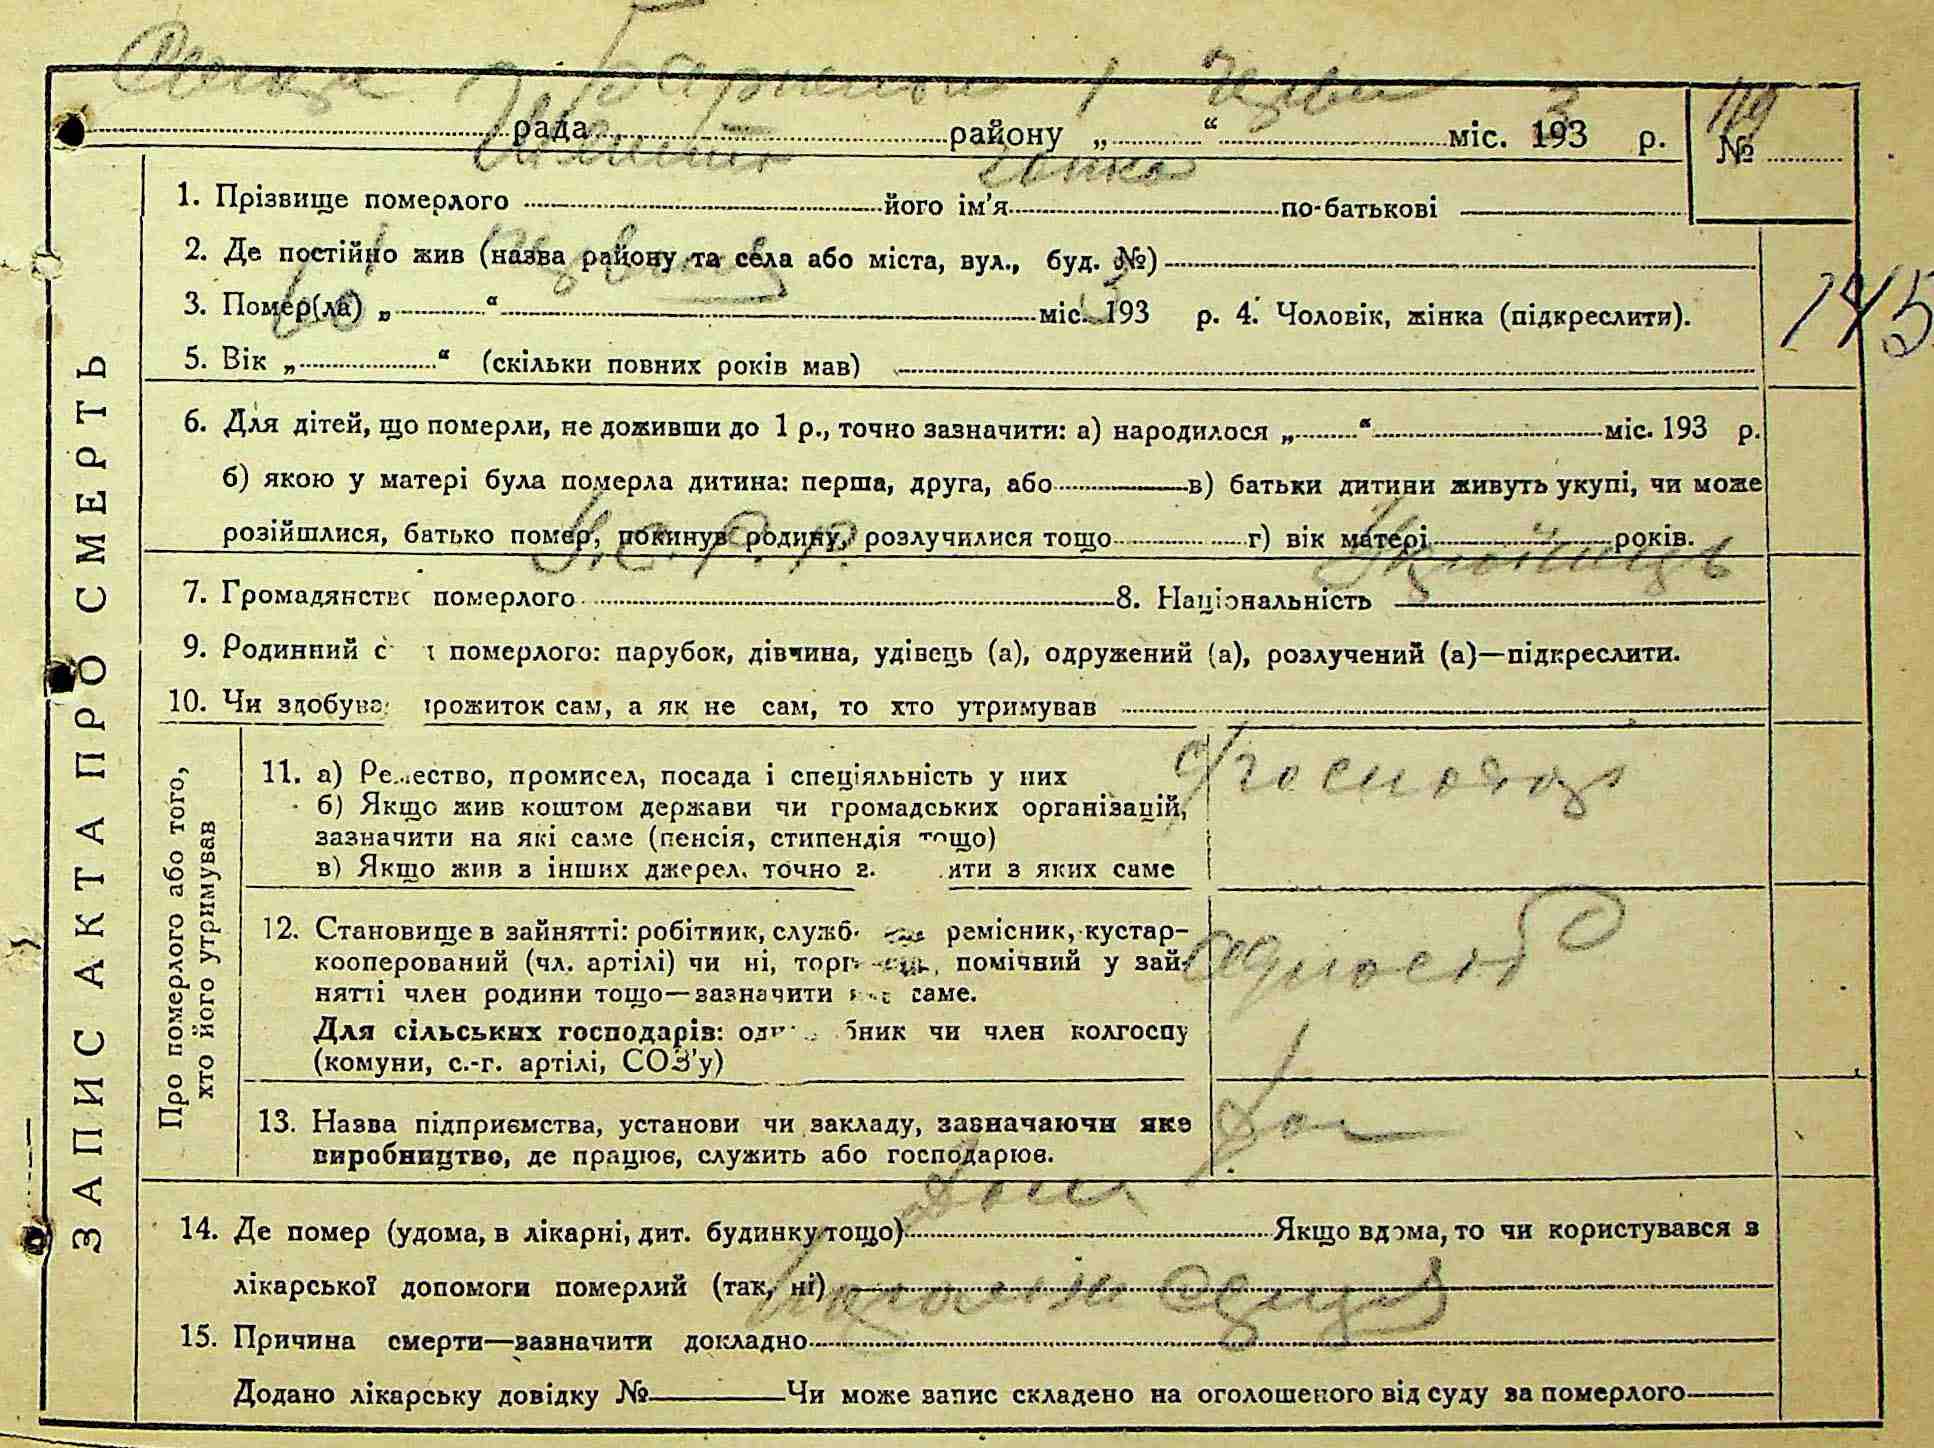 1
рада районy „ “ міс. 1933 р. № 119
1. Прізвище померлого його ім'я по-батькові
2. Де постійно жив (назва району та села або міста, вул., буд. №)
3. Помер(ла) „ “ міс. 193 р. 4. Чоловік, жінка (підкреслити).
145
60
5. Вік „ “ (скільки повних років мав)
6. Для дітей, що померли, не доживши до 1 р., точно зазначити: а) народилося „ “ міс. 193 р.
б) якою у матері була померла дитина: перша, друга, або в) батьки дитини живуть укупі, чи може
розійшлися, батько помер, покинув родину, розлучилися тощо г) вік матері років.
У.С.Р.Р. Українець
7. Громадянство померлого 8. Національність
9. Родинний с померлого: парубок, дівчина, удівець (а), одружений (а), розлучений (а)—підкреслити.
10. Чи здобував прожиток сам, а як не сам, то хто утримував
ЗАПИС АКТА ПРО СМЕРТЬ
Про померлого або того,
хто його утримував
11. а) Ремество, промисел, посада і спеціяльність у них
б) Якщо жив коштом держави чи громадських організацій,
зазначити на які саме (пенсія, стипендія тощо)
в) Якщо жив з інших джерел, точно з ити з яких саме
12. Становище в зайнятті: робітник, служб ремісник, кустар-
кооперований (чл. артілі) чи ні, торг помічний у зай-
нятті член родини тощо—зазначити саме.
Для сільських господарів: од бник чи член колгоспу
(комуни, с.-г. артілі, СОЗ'у)
13. Назва підприємства, установи чи закладу, зазначаючи яке
виробництво, де працює, служить або господарює.
Дом
14. Де помер (удома, в лікарні, дит. будинку тощо) Якщо вдома, то чи користувався з
лікарської допомоги померлий (так, ні)
15. Причина смерти—зазначити докладно
Додано лікарську довідку № Чи може запис складено на оголошеного від суду за померлого